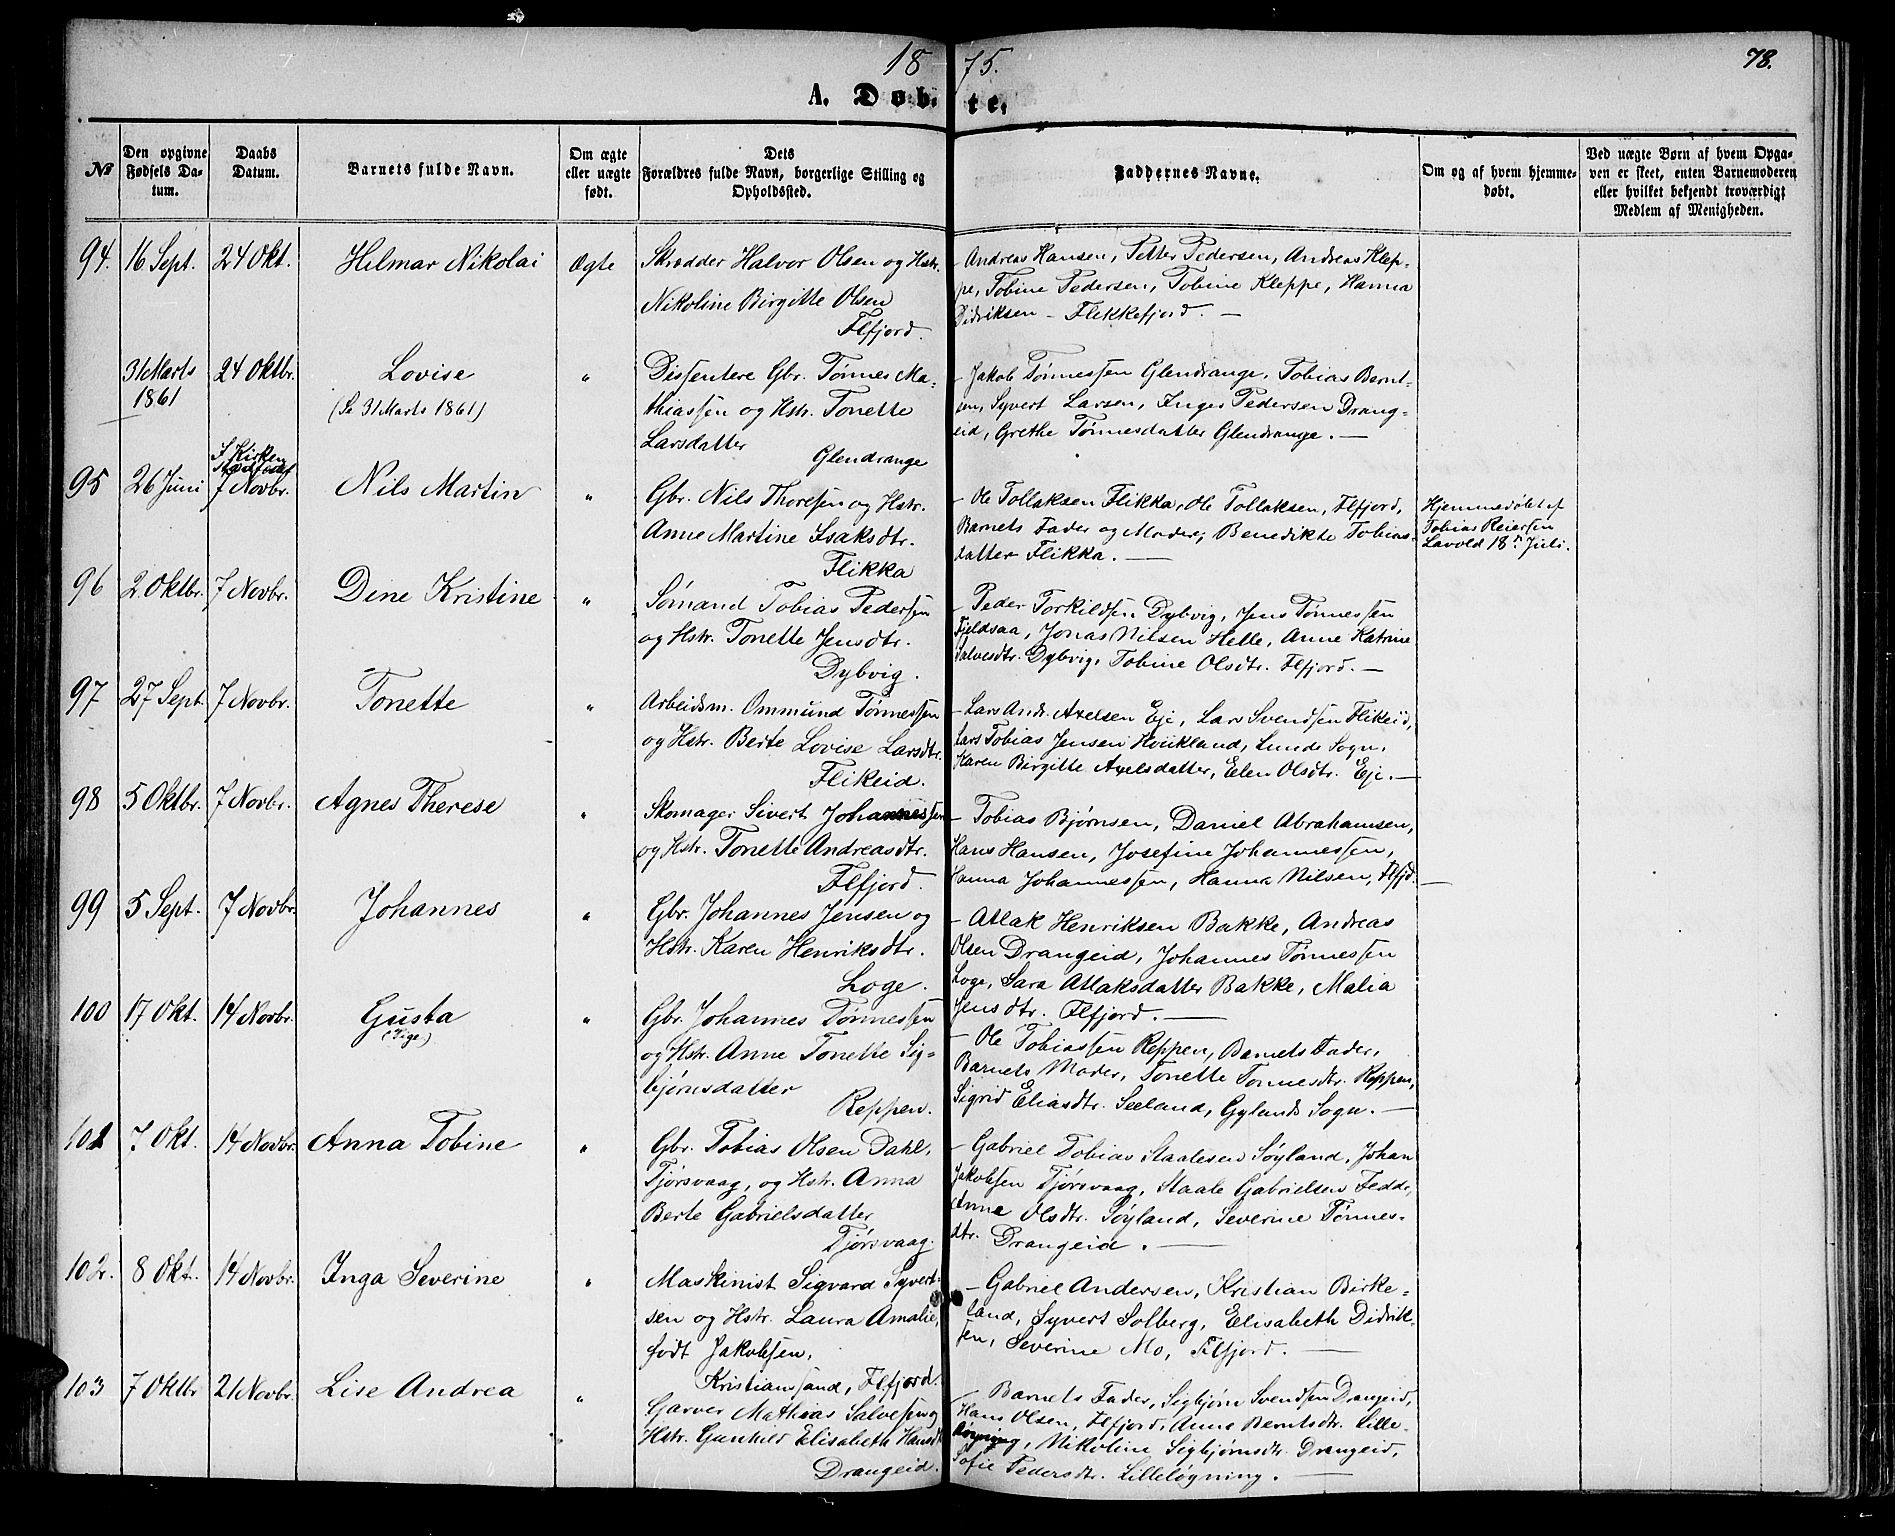 18 75.
78.
A. Døb- te.
№
Den opgivne Fødsels Da- tum.
Daabs Datum.
Barnets fulde Navn.
Om ægte eller uægte født.
Dets Forældres fulde Navn, borgerlige Stilling og Opholdssted.
Faddernes Navne.
Om og af hvem hjemme- døbt.
Ved uægte Børn af hvem Opga- ven er skeet, enten Barnemoderen eller hvilket bekjendt troværdigt Medlem af Menigheden.
94. 16 Sept. 24 Okt. Hilmar Nikolai Ægte
Skrædder Halvor Olsen og Hstr.
Nikoline Birgitte Olsen
Flfjord.
- Andreas Hansen, Petter Pedersen, Andreas Klep-
pe, Tobine Pedersen, Tobine Kleppe, Hanna
Didriksen - Flekkefjord. -
31 Marts 24 Oktbr. Lovise "
1861 (Se 31 Marts 1861)
Dissentere Gbr. Tønnes Ma-
thiassen og Hstr. Tonette
Larsdatter
Glendrange
- Jakob Tønnessen Glendrange, Tobias Bernt-
sen, Syvert Larsen, Inger Pedersen Drang-
eid, Grethe Tønnesdatter Glendrange. -
I Kirken
Stadfæstet
95 26 Juni 7 Novbr. Nils Martin "
Gbr. Nils Thoresen og Hstr.
Anne Martine Isaksdtr.
Flikka
- Ole Tollaksen Flikka, Ole Tollaksen, Flfjord,
Barnets Fader og Moder, Benedikte Tobias-
datter Flikka. -
Hjemmedøbt af
Tobias Reiersen
Lavold 18de Juli.
96 2 Oktbr. 7 Novbr. Dine Kristine "
Sømand Tobias Pedersen
og Hstr. Tonette Jensdtr.
Dybvig.
- Peder Torkildsen Dybvig, Jens Tønnessen
Fjeldsaa, Jonas Nilsen Helle, Anne Katrine
Salvesdtr. Dybvig, Tobine Olsdtr. Flfjord. -
97 27 Sept. 7 Novbr. Tonette "
Arbeidsm. Ommund Tønnessen
og Hstr. Berte Lovise Larsdtr.
Flikeid.
- Lars Andr. Axelsen Eje, Lars Svendsen Flikeid,
Lars Tobias Jensen Kvikland, Lunds Sogn,
Karen Birgitte Axelsdatter, Elen Olsdtr. Eje. -
98 5 Oktbr. 7 Novbr. Agnes Therese "
Skomager Sivert Johannessen
og Hstr. Tonette Andreasdtr.
Flfjord.
- Tobias Bjørnsen, Daniel Abrahamsen,
Hans Hansen, Josefine Johannessen,
Hanna Johannessen, Hanna Nilsen, Flfjd. -
99 5 Sept. 7 Novbr. Johannes "
Gbr. Johannes Jensen og
Hstr. Karen Henriksdtr.
Loge.
- Atlak Henriksen Bakke, Andreas
Olsen Drangeid, Johannes Tønnessen
Loge, Sara Atlaksdatter Bakke, Malia
Jensdtr. Flfjord. -
100 17 Okt. 14 Novbr. Gusta "
(Pige)
Gbr. Johannes Tønnessen
og Hstr. Anne Tonette Sig-
bjørnsdatter
Reppen.
- Ole Tobiassen Reppen, Barnets Fader,
Barnets Moder, Tonette Tønnesdtr. Reppen,
Sigrid Eliasdtr. Seeland, Gylands Sogn. -
101 7 Okt. 14 Novbr. Anna Tobine "
Gbr. Tobias Olsen Dahl,
Tjørsvaag, og Hstr. Anna
Berte Gabrielsdatter
Tjørsvaag.
- Gabriel Tobias Staalesen Søyland, Johan
Jakobsen Tjørsvaag, Staale Gabrielsen Fedde,
Anne Olsdtr. Søyland, Severine Tønnes-
dtr. Drangeid. -
102. 8 Okt. 14 Novbr. Inga Severine "
Maskinist Sigvard Syvert-
sen og Hstr. Laura Amalie,
født Jakobsen,
Kristianssand, Flfjord.
- Gabriel Andersen, Kristian Birke-
land, Syvert Solberg, Elisabeth Didrik-
sen, Severine Mo, Flfjord. -
103 7 Oktbr 21 Novbr. Lise Andrea "
Garver Mathias Salvesen og
Hstr. Gunhild Elisabeth Hansdtr
Drangeid.
- Barnets Fader, Sigbjørn Svendsen Drangeid,
Hans Olsen, Flfjord, Anna Berntsdtr. Lille-
løgning, Nikoline Sigbjørnsdtr. Drangeid,
Sofie Pedersdtr. Lilleløgning. -